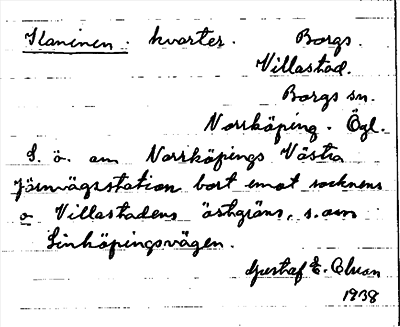 Kaninen. kvarter. Borgs
Villastad.
Borgs sn.
Norrköping. Ögl.
S. ö. om Norrköpings Västra
Järnvägsstation bort emot socknens
o Villastadens östgräns, s. om
Linköpingsvägen.
Gustaf E. Olsson
1938